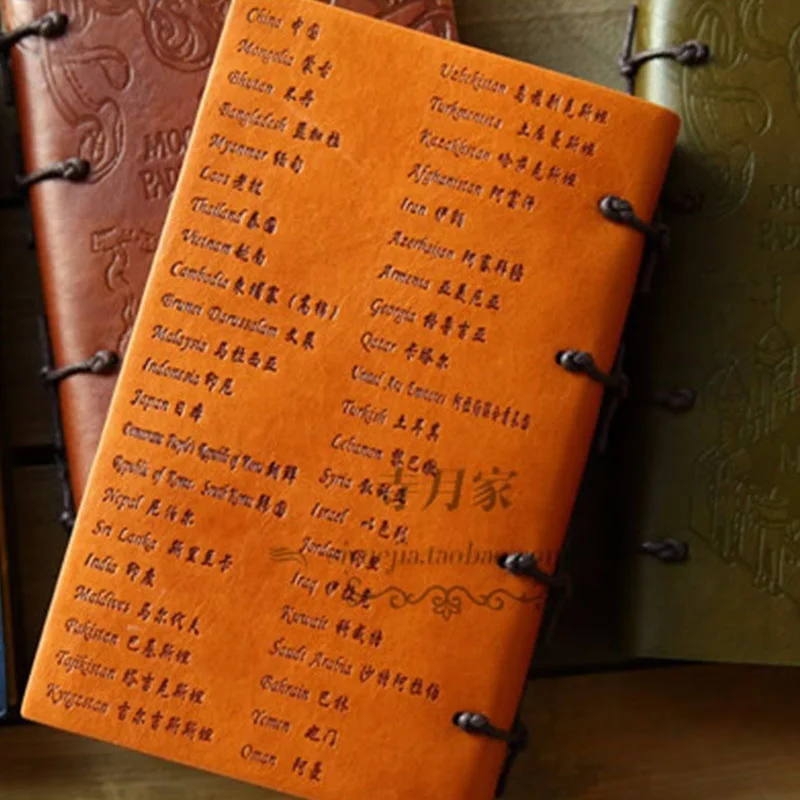 China 中国
Mongolia 蒙古
Bhutan 不丹
Bangladesh 孟加拉
Myanmar 缅甸
Laos 老挝
Thailand 泰国
Vietnam 越南
Cambodia 柬埔寨（高棉）
Brunei Darussalam 文莱
Malaysia 马拉西亚
Indonesia 印尼
Japan 日本
Democratic People's Republic of Korea 朝鲜
Republic of Korea South Korea 韩国
Nepal 尼泊尔
Sri Lanka 斯里兰卡
India 印度
Maldives 马尔代夫
Pakistan 巴基斯坦
Tajikistan 塔吉克斯坦
Kyrgzstan 吉尔吉斯斯坦
Uzbekistan 乌兹别克斯坦
Turkmenista 土库曼斯坦
Kazakhstan 哈萨克斯坦
Afghanistan 阿富汗
Iran 伊朗
Azerbaijan 阿塞拜疆
Armenia 亚美尼亚
Georgia 格鲁吉亚
Qatar 卡塔尔
United Ara Emirates 阿拉伯联合酋长国
Turkish 土耳其
Lebanon 黎巴嫩
Syria 叙利亚
Israel 以色列
Jordan 约旦
Iraq 伊拉克
Kuwait 科威特
Saudi Arabia 沙特阿拉伯
Bahrain 巴林
Yemen 也门
Oman 阿曼
月家
.taobao.com
MOO
PAD
MO
PAD